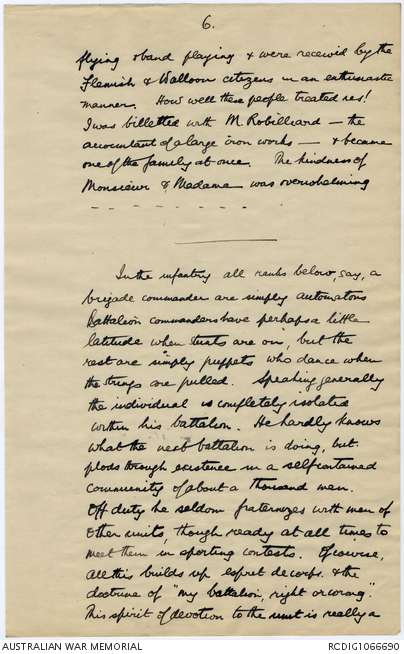 6.
flying & band playing & were received by the
Flemish & Walloon citizens in an enthusiastic
manner. How well these people treated us!
I was billetted with M. Robilliard — the
accountant of a large iron works — & became
one of the family at once. The kindness of
Monsieur & Madame was overwhelming
- - - - - - - - - -
In the infantry all ranks below, say, a
brigade commander are simply automatons
Battalion commanders have perhaps a little
latitude when "stunts are on", but the
rest are simply puppets who dance when
the strings are pulled. Speaking generally
the individual is completely isolated
within his battalion. He hardly knows
what the next battalion is doing, but
plods through existence in a selfcontained
community of about a thousand men.
Off duty he seldom fraternizes with men of
other units, though ready at all times to
meet them in sporting contests. Of course,
all this builds up esprit de corps & the
doctrine of "my battalion, right or wrong".
This spirit of devotion to the unit is really a
AUSTRALIAN WAR MEMORIAL
RCDIG1066690